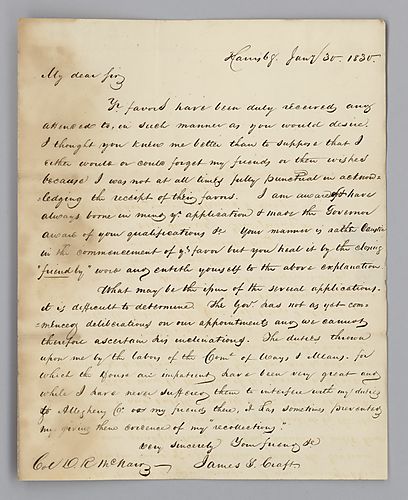 Harrisbg. Jany 30. 1830.
My dear Sir,
Yr favors have been duly received and
attended to, in such manner as you would desire.
I thought you knew me better than to suppose that I
either would or could forget my friends or their wishes
because I was not at all times fully punctual in acknow-
=ledging the receipt of their favors. I am aware & have
always borne in mind yr application & made the Governor
aware of your qualifications &c Your manner is rather
in the commencement of yr favor but you heal it by the closing
"friendly" word and entitle yourself to the above explanation.
What may be the issue of the several applications.
it is difficult to determine. The Govr. has not as yet com-
=menced deliberations on our appointments and we cannot
therefore ascertain his inclinations. The duties thrown
upon me by the labors of the Comt. of Ways & Means. for
which the House are impatient have been very great and
while I have never suffered them to interfere with my duties
to Allegheny Co. or my friends there, it has sometimes prevented
my giving them evidence of my "recollections"
very sincerely Your friend &c
James S. Craft
Col D. R. McNair